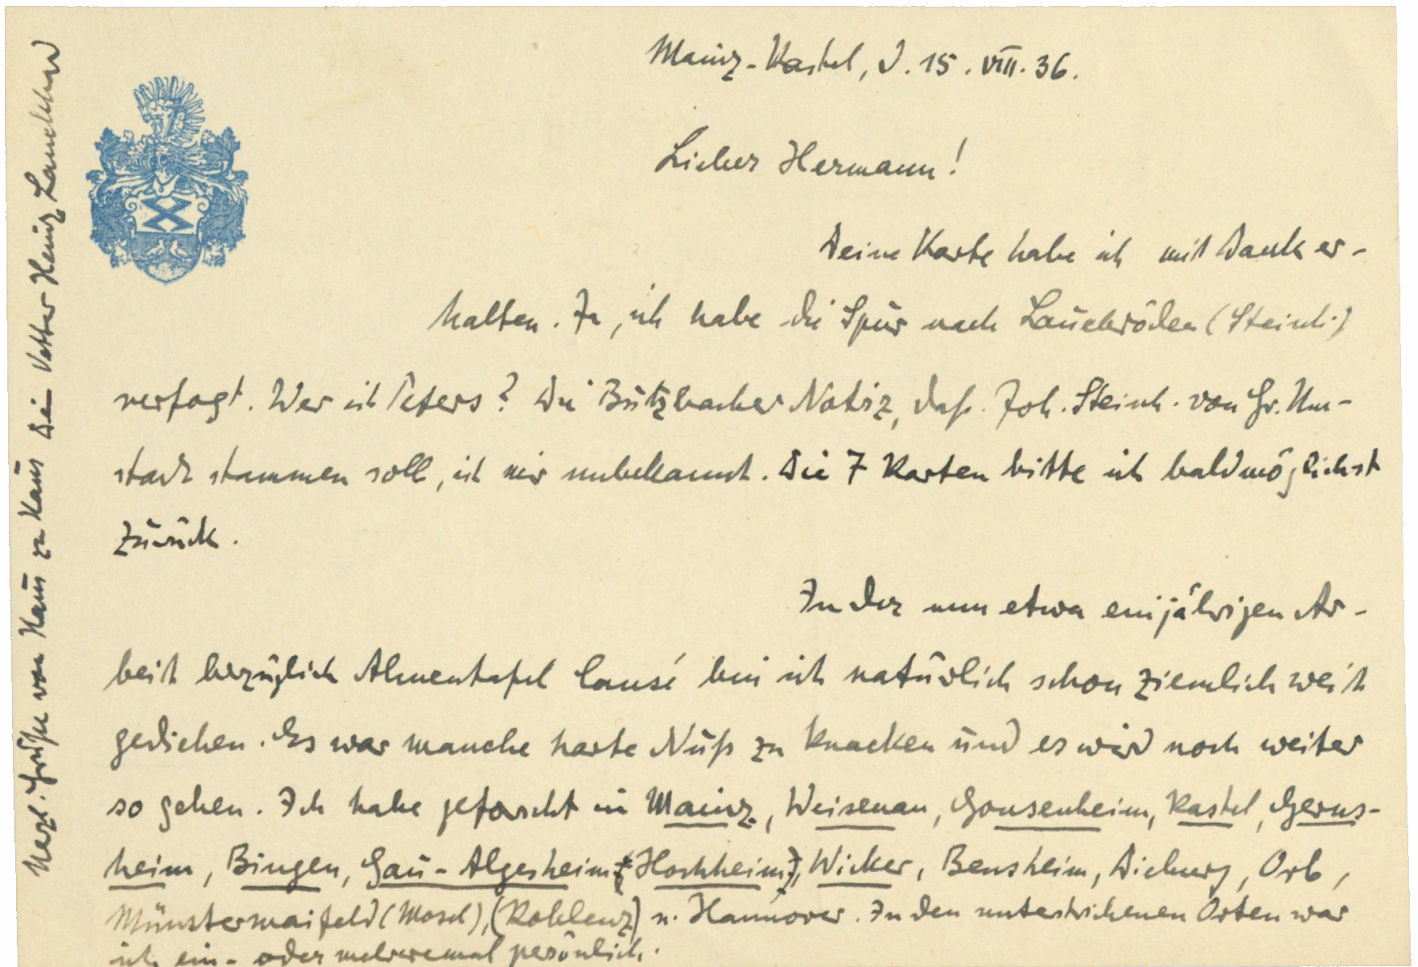 Mainz-Kastel, d. 15. VIII. 36.
Lieber Hermann!
Deine Karte habe ich mit Dank er-
halten. Ja, ich habe die Spur nach Lauchröden (Steinh.)
verfogt. Wer ist Peters? Die Butzbacher Notiz, daß Joh. Steinh. von Gr. Um-
stadt stammen soll, ist mir unbekannt. Die 7 Karten bitte ich baldmöglichst
zurück.
In der nun etwa einjährigen Ar-
beit bezüglich Ahnentafel Causé bin ich natürlich schon ziemlich weit
gediehen. Es war manche harte Nuß zu knacken und es wird noch weiter
so gehen. Ich habe geforscht in Mainz, Weisenau, Gonsenheim, Kastel, Gerns-
heim, Bingen, Gau-Algesheim, Hochheim, Wicker, Bensheim, Dieburg, Orb,
Münstermaifeld (Mosel), (Koblenz) u. Hannover. In den unterstrichenen Orten war
ich ein- oder mehreremal persönlich.
Herzl. Grüße von Haus zu Haus Dein Vetter Heinz